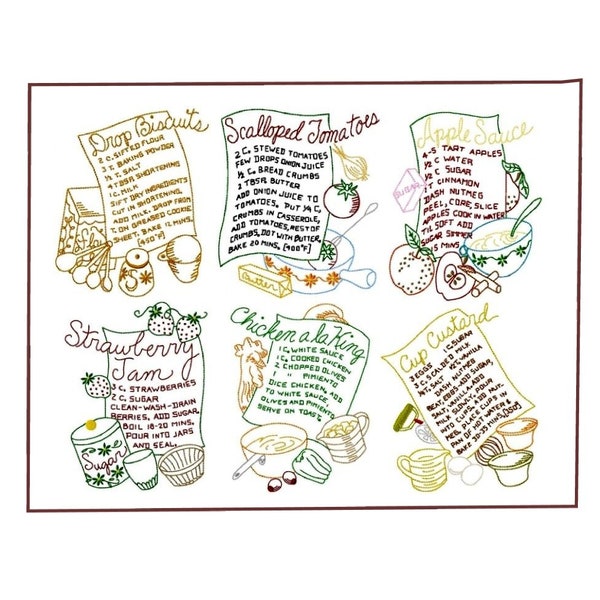 Drop Biscuits
2 C. SIFTED FLOUR
3 T. BAKING POWDER
1/2 T. SALT
4 TBSP. SHORTENING
1 C. MILK
SIFT DRY INGREDIENTS
CUT IN SHORTENING.
ADD MILK. DROP FROM
T. ON GREASED COOKIE
SHEET. BAKE 12 MINS.
(450°F)
Scalloped Tomatoes
2 C. STEWED TOMATOES
FEW DROPS ONION JUICE
1/2 C. BREAD CRUMBS
2 TBSP. BUTTER
ADD ONION JUICE TO
TOMATOES. PUT 1/4 C.
CRUMBS IN CASSEROLE,
ADD TOMATOES, REST OF
CRUMBS, DOT WITH BUTTER,
BAKE 20 MINS. (400°F)
Butter
Apple Sauce
4-5 TART APPLES
1/2 C WATER
1/2 C SUGAR
1 T CINNAMON
DASH NUTMEG
PEEL, CORE, SLICE
APPLES COOK IN WATER
TIL SOFT ADD
SUGAR SIMMER
5 MINS
SUGAR
Strawberry
Jam
3 C. STRAWBERRIES
2 C. SUGAR
CLEAN-WASH-DRAIN
BERRIES, ADD SUGAR,
BOIL 18-20 MINS.
POUR INTO JARS
AND SEAL.
Sugar
Chicken a la King
1 C. WHITE SAUCE
1 C. COOKED CHICKEN
2 CHOPPED OLIVES
1 " PIMIENTO
DICE CHICKEN, ADD
TO WHITE SAUCE.
OLIVES AND PIMIENTO.
SERVE ON TOAST.
Cup Custard
3 EGGS 1/2 C SUGAR
3 C. SCALDED MILK
1/4 T. SALT VANILLA
DASH NUTMEG
BEAT EGGS, ADD SUGAR,
SALT, VANILLA. ADD
MILK SLOWLY. POUR
INTO CUPS. ADD NUT-
MEG. PLACE CUPS IN
PAN OF HOT WATER &
BAKE 30-35 MINS. (350)